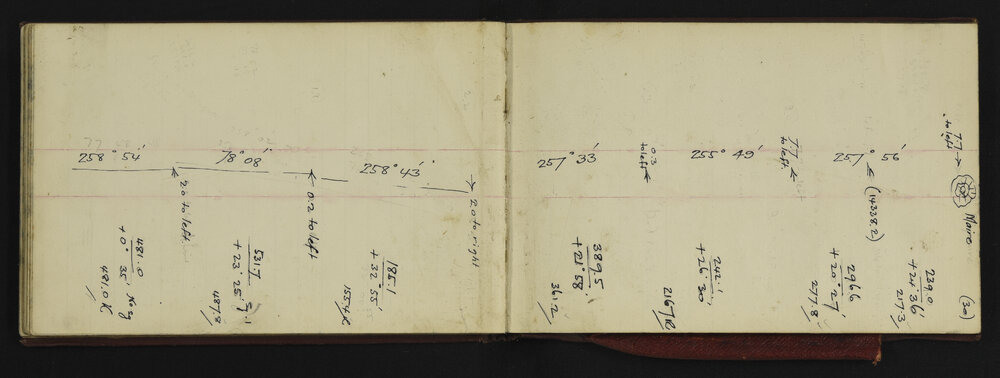 258° 54'
78° 08'
258° 43'
20 to left.
0.2 to left
20 to right
481.0
+ 0° 35'
481.0 K
531.7
+ 23° 25'
487.9
185.1
+ 32° 55'
155.4 K
257° 33'
0.3
to left
255° 49'
7.7
to left.
257° 56'
(14338.2)
7.7
to left
Maire
389.5
+ 21° 58'
361.2
242.1
+ 26° 30
216.7 K
296.6
+ 20° 27'
277.8
239.0
+ 24° 36
217.3
(30)